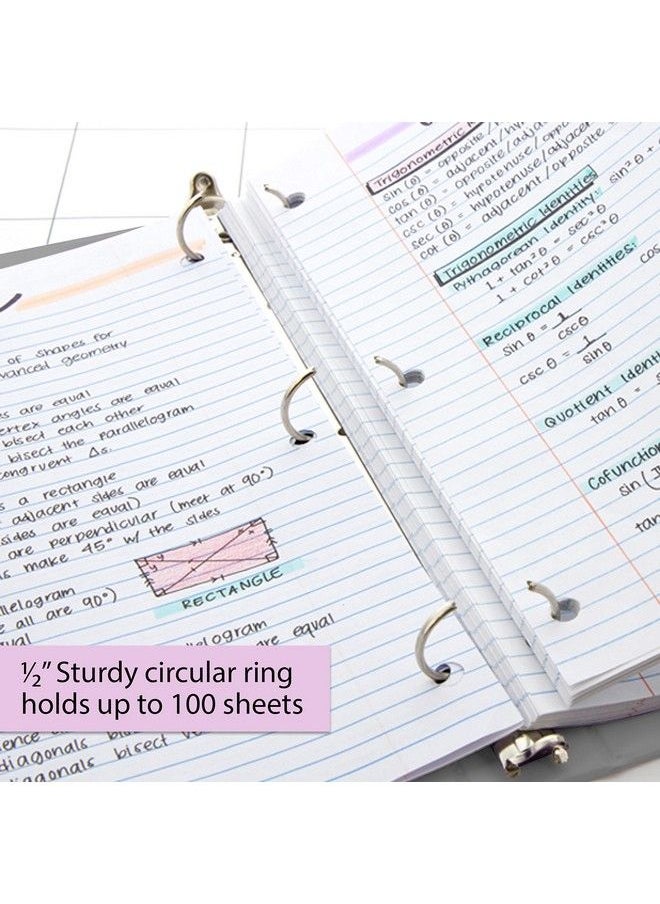 of shapes for
vanced geometry
es are equal
ertex angles are equal
bisect each other
bisect the parallelogram
congruent Δs.
s a rectangle
adjacent sides are equal
sides are equal)
are perpendicular (meet at 90°)
s make 45° w/ the sides
RECTANGLE
llelogram
e all are 90°)
ual
llelogram
are equal
½” Sturdy circular ring
holds up to 100 sheets
diagonals
agonals bisect
Trigonometric
sin (θ) = opposite/
cos (θ) = adjacent/hy
tan (θ) = opposite/adja
csc (θ) = hypotenuse/oppo
sec (θ) = hypotenuse/adjacen
cot (θ) = adjacent/opposite
Trigonometric Identities
Pythagorean Identity:
sin²θ +
1 + tan²θ = sec²θ
1 + cot²θ = csc²θ
Reciprocal Identities:
sin θ = 1/cscθ
cos
csc θ = 1/sinθ
Quotient Identi
tan θ =
Cofunction
sin (
tan